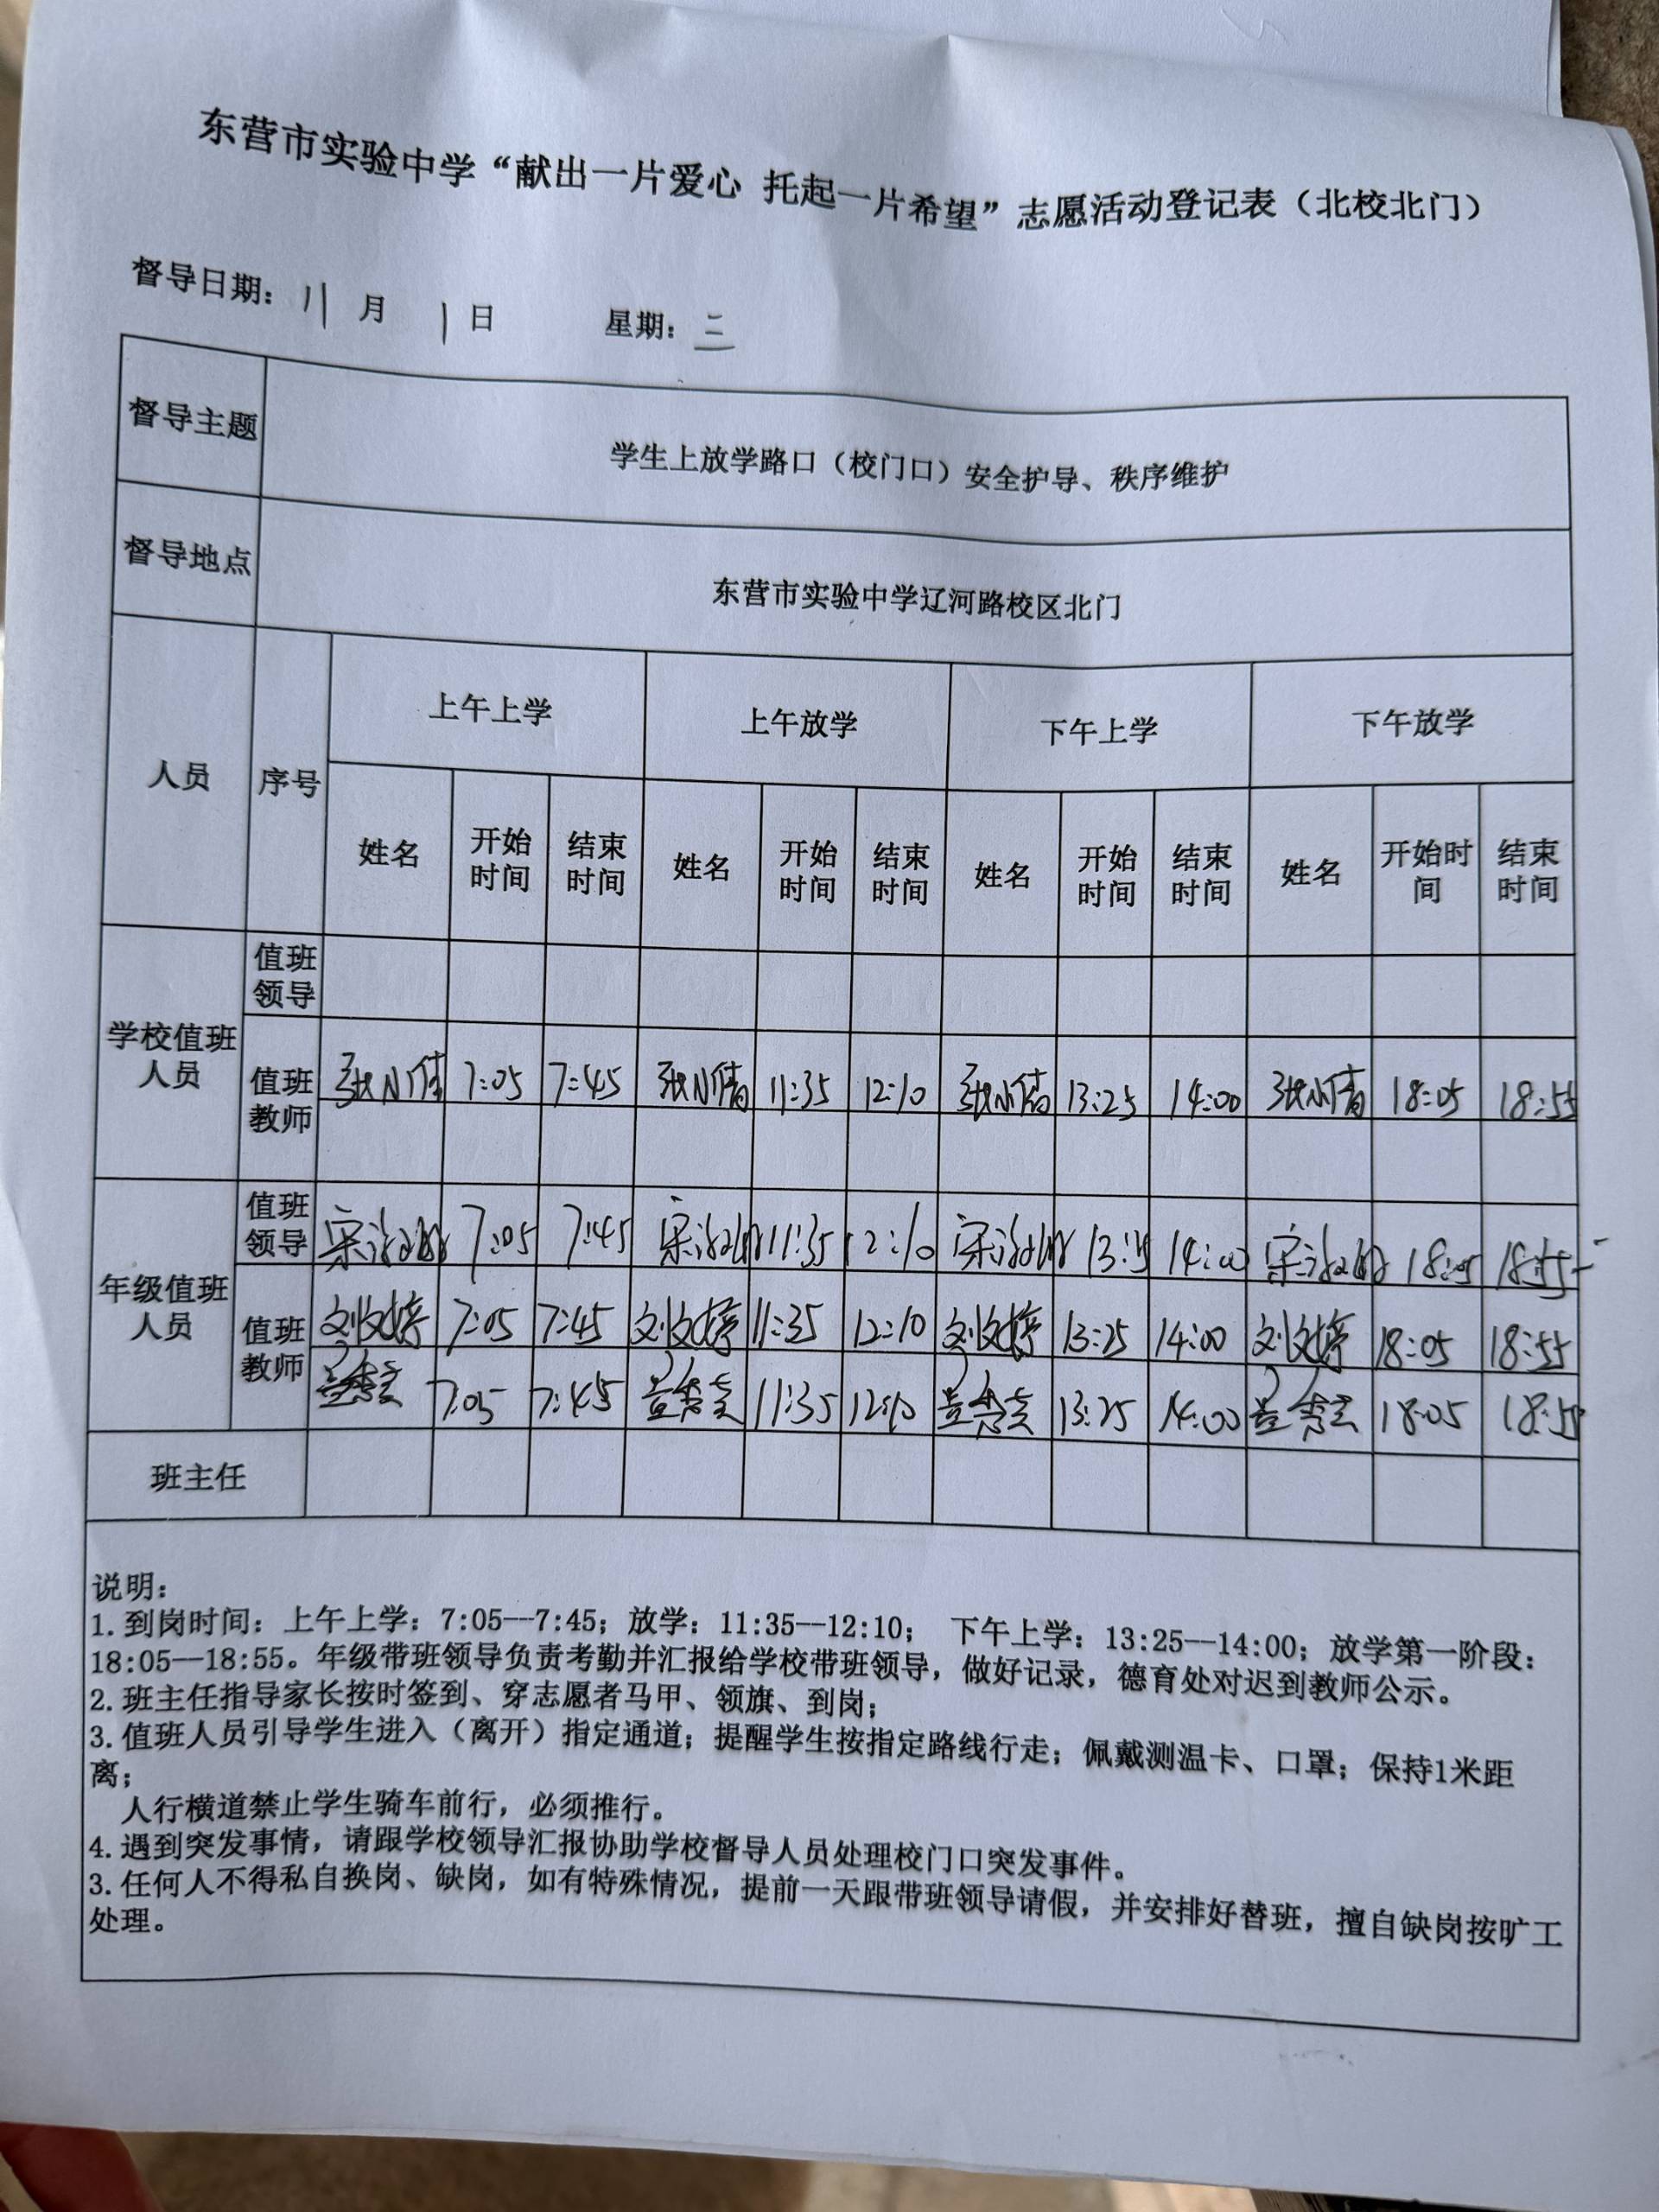 东营市实验中学“献出一片爱心 托起一片希望”志愿活动登记表（北校北门）
督导日期：11 月 1 日 星期：二
督导主题 学生上放学路口（校门口）安全护导、秩序维护
督导地点 东营市实验中学辽河路校区北门
人员 序号 上午上学 上午放学 下午上学 下午放学
姓名 开始时间 结束时间 姓名 开始时间 结束时间 姓名 开始时间 结束时间 姓名 开始时间 结束时间
学校值班人员
值班领导
值班教师 张小倩 7:05 7:45 张小倩 11:35 12:10 张小倩 13:25 14:00 张小倩 18:05 18:55
年级值班人员
值班领导 宋 7:05 7:45 宋 11:35 12:10 宋 14:00 宋 18:05 18:55
值班教师 刘文婷 7:05 7:45 刘文婷 11:35 12:10 刘文婷 13:25 14:00 刘文婷 18:05 18:55
7:05 7:45 11:35 12:10 13:25 14:00 18:05 18:55
班主任
说明：
1.到岗时间：上午上学：7:05—7:45；放学：11:35—12:10； 下午上学：13:25—14:00；放学第一阶段：
18:05—18:55。年级带班领导负责考勤并汇报给学校带班领导，做好记录，德育处对迟到教师公示。
2.班主任指导家长按时签到、穿志愿者马甲、领旗、到岗；
3.值班人员引导学生进入（离开）指定通道；提醒学生按指定路线行走；佩戴测温卡、口罩；保持1米距
离；
人行横道禁止学生骑车前行，必须推行。
4.遇到突发事情，请跟学校领导汇报协助学校督导人员处理校门口突发事件。
3.任何人不得私自换岗、缺岗，如有特殊情况，提前一天跟带班领导请假，并安排好替班，擅自缺岗按旷工
处理。